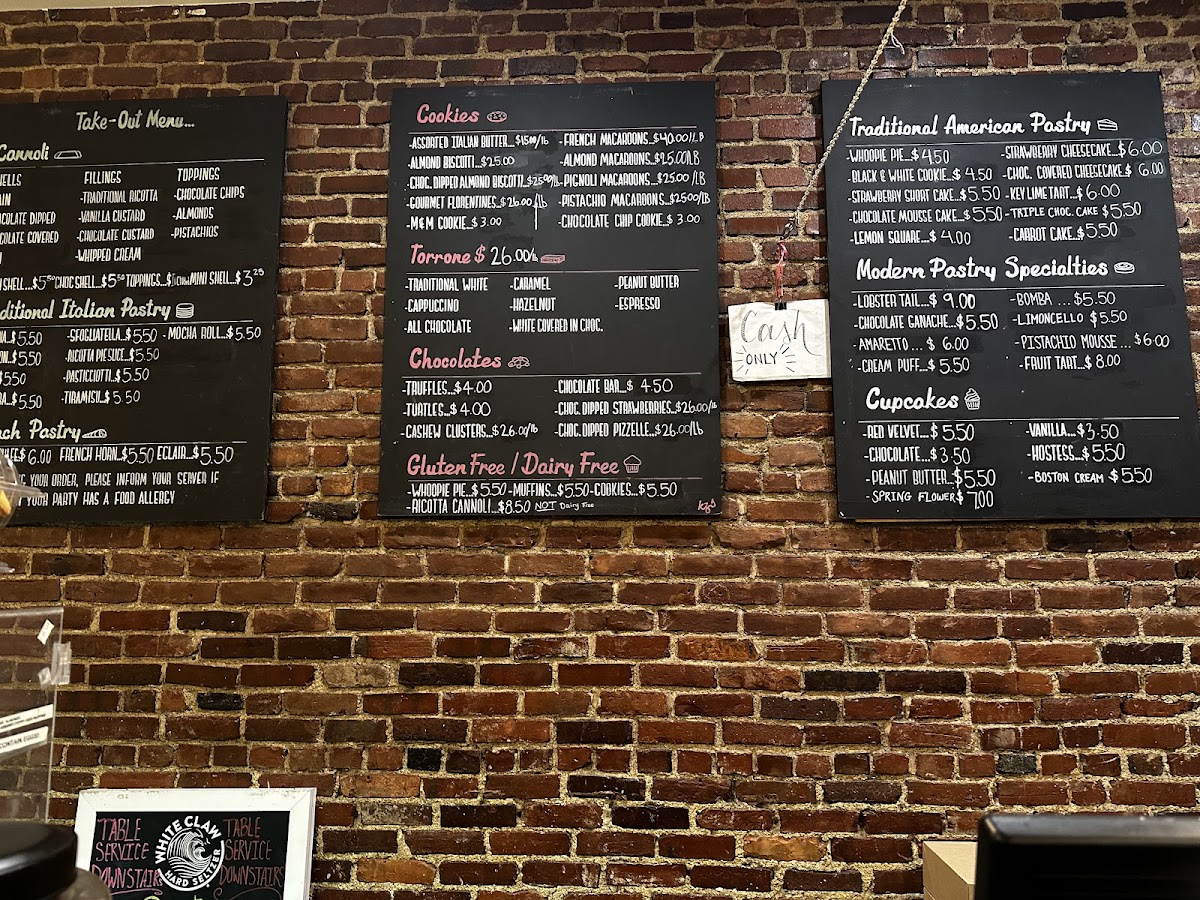 Take-Out Menu...
Cannoli
FILLINGS
TOPPINGS
-TRADITIONAL RICOTTA
-CHOCOLATE CHIPS
-VANILLA CUSTARD
-ALMONDS
-CHOCOLATE CUSTARD
-PISTACHIOS
-WHIPPED CREAM
DIPPED
COVERED
SHELL...$5.50 CHOC SHELL...$5.50 TOPPINGS...$1 MINI SHELL...$3.25
Italian Pastry
-SFOGLIATELLA...$5.50 -MOCHA ROLL...$5.50
$5.50
-RICOTTA PIE SLICE...$5.50
$5.50
-PASTICCIOTTI...$5.50
$5.50
-TIRAMISU...$5.50
Pastry
$6.00 FRENCH HORN...$5.50 ECLAIR...$5.50
YOUR ORDER, PLEASE INFORM YOUR SERVER IF
YOUR PARTY HAS A FOOD ALLERGY
Cookies
-ASSORTED ITALIAN BUTTER...$15.00/lb
-FRENCH MACAROONS...$40.00/LB
-ALMOND BISCOTTI...$25.00
-ALMOND MACAROONS...$25.00/LB
-CHOC. DIPPED ALMOND BISCOTTI...$25.00/lb
-PIGNOLI MACAROONS...$25.00/LB
-GOURMET FLORENTINES...$26.00/lb
-PISTACHIO MACAROONS...$25.00/LB
-M&M COOKIE...$3.00
-CHOCOLATE CHIP COOKIE...$3.00
Torrone $26.00/lb
-TRADITIONAL WHITE
-CARAMEL
-PEANUT BUTTER
-CAPPUCCINO
-HAZELNUT
-ESPRESSO
-ALL CHOCOLATE
-WHITE COVERED IN CHOC.
Chocolates
-TRUFFLES...$4.00
-CHOCOLATE BAR...$4.50
-TURTLES...$4.00
-CHOC. DIPPED STRAWBERRIES...$26.00/lb
-CASHEW CLUSTERS...$26.00/lb
-CHOC. DIPPED PIZZELLE...$26.00/lb
Gluten Free / Dairy Free
-WHOOPIE PIE...$5.50 -MUFFINS...$5.50 -COOKIES...$5.50
-RICOTTA CANNOLI...$8.50 NOT Dairy Free
Cash
ONLY
Traditional American Pastry
-WHOOPIE PIE...$4.50
-STRAWBERRY CHEESECAKE...$6.00
-BLACK & WHITE COOKIE...$4.50
-CHOC. COVERED CHEESECAKE.$6.00
-STRAWBERRY SHORT CAKE..$5.50
-KEY LIME TART...$6.00
-CHOCOLATE MOUSSE CAKE...$5.50
-TRIPLE CHOC. CAKE $5.50
-LEMON SQUARE...$4.00
-CARROT CAKE...$5.50
Modern Pastry Specialties
-LOBSTER TAIL...$9.00
-BOMBA ...$5.50
-CHOCOLATE GANACHE...$5.50
-LIMONCELLO $5.50
-AMARETTO... $6.00
-PISTACHIO MOUSSE...$6.00
-CREAM PUFF...$5.50
-FRUIT TART...$8.00
Cupcakes
-RED VELVET...$5.50
-VANILLA...$3.50
-CHOCOLATE...$3.50
-HOSTESS...$5.50
-PEANUT BUTTER...$5.50
-BOSTON CREAM $5.50
-SPRING FLOWER $7.00
CONTAIN EGGS!
TABLE
SERVICE
DOWNSTAIRS
WHITE CLAW
HARD SELTZER
TABLE
SERVICE
DOWNSTAIRS